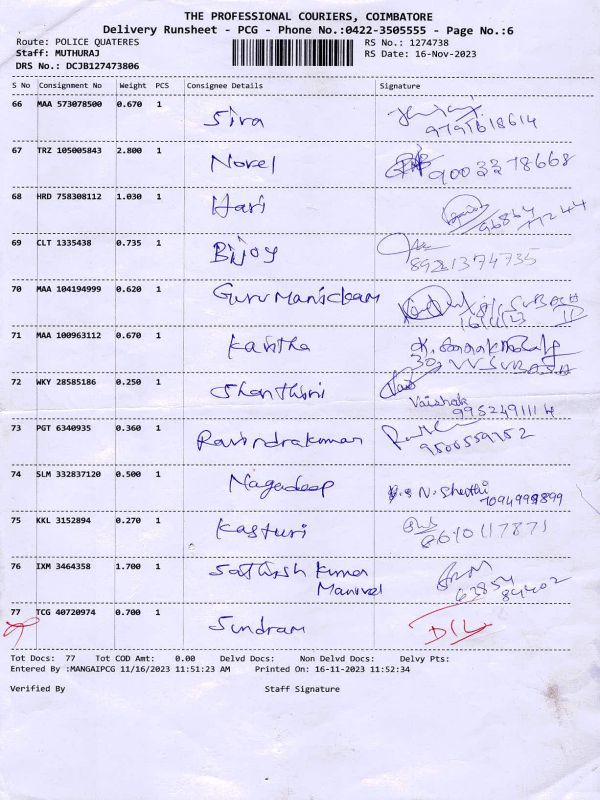 THE PROFESSIONAL COURIERS, COIMBATORE
Delivery Runsheet - PCG - Phone No.:0422-3505555 - Page No.:6
Route: POLICE QUATERES RS No.: 1274738
Staff: MUTHURAJ RS Date: 16-Nov-2023
DRS No.: DCJB127473806
S No Consignment No Weight PCS Consignee Details Signature
66 MAA 573078500 0.670 1 Siva
9791618614
67 TRZ 105005843 2.800 1 Novel
9003378668
68 HRD 758308112 1.030 1 Hari
96864
77244
69 CLT 1335438 0.735 1 Bijoy
8921374735
70 MAA 104194999 0.620 1 Gurumanickam
71 MAA 100963112 0.670 1 Kavitha
72 WKY 28585186 0.250 1 Shanthini
Vaishak
9952491114
73 PGT 6340935 0.360 1 Ravindrakumar
9500559752
74 SLM 332837120 0.500 1 Nagadeep
N. Shanthi
75 KKL 3152894 0.270 1 Kasturi
76 IXM 3464358 1.700 1 Sathissh Kumar
63854
84402
77 TCG 40720974 0.700 1 Sundram
DIL
Tot Docs: 77 Tot COD Amt: 0.00 Delvd Docs: Non Delvd Docs: Delvy Pts:
Entered By :MANGAIPCG 11/16/2023 11:51:23 AM Printed On: 16-11-2023 11:52:34
Verified By Staff Signature